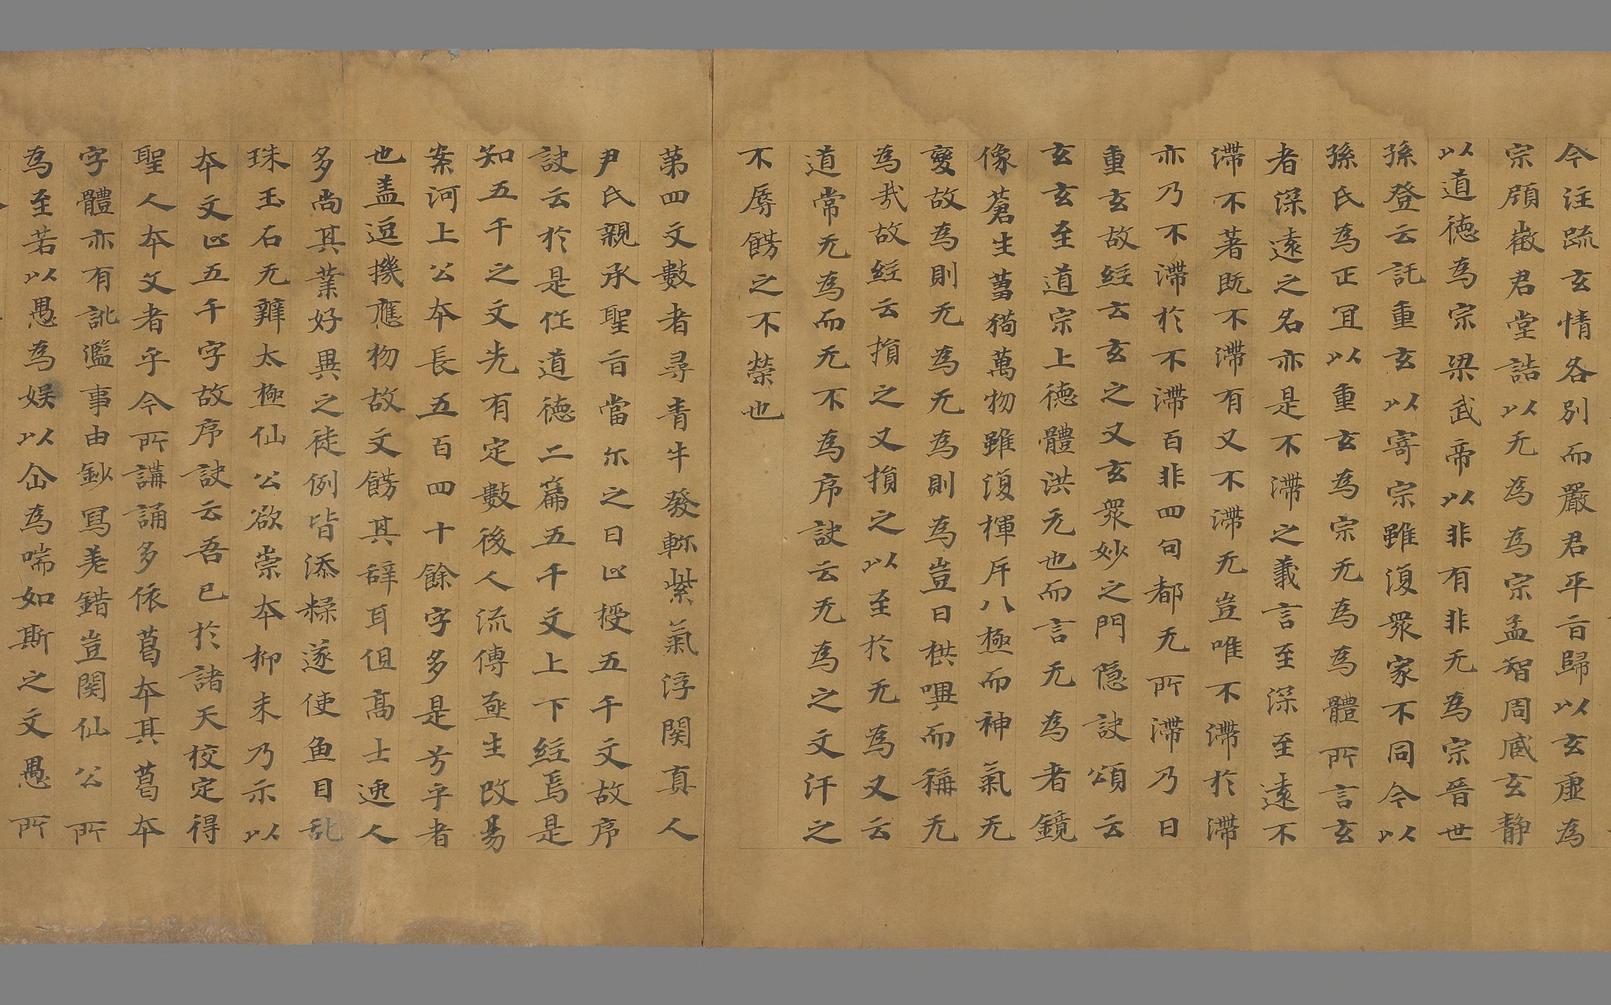 今注踈玄情各別而嚴君平旨歸以玄虛為
宗顧歡君堂誥以无為為宗孟智周臧玄靜
以道德為宗梁武帝以非有非无為宗晉世
孫登云託重玄以寄宗雖復衆家不同今以
孫氏為正冝以重玄為宗无為為體所言玄
者深遠之名亦是不滯之義言至深至遠不
滯不著既不滯有又不滯无豈唯不滯於滯
亦乃不滯於不滯百非四句都无所滯乃曰
重玄故経云玄之又玄衆妙之門隱訣頌云
玄玄至道宗上德體洪无也而言无為者鏡
像蒼生蒭猫萬物雖復揮斥八極而神氣无
變故為則无為无為則為豈曰栱嘿而稱无
為㢤故経云損之又損之以至於无為又云
道常无為而无不為序訣云无為之文汙之
不辱餝之不榮也
第四文數者尋青牛發軫紫氣浮関真人
尹氏親承聖旨當尓之日止授五千文故序
訣云於是作道德二篇五千文上下経焉是
知五千之文先有定數後人流傳亟生改易
案河上公夲長五百四十餘字多是兮乎者
也盖逗機應物故文餝其辝耳但髙士逸人
多尚其業好異之徒例皆添糅遂使魚目乱
珠玉石无辯太極仙公欲崇夲抑末乃示以
夲文止五千字故序訣云吾已於諸天校定得
聖人夲文者乎今所講誦多依葛夲其葛夲
字體亦有訛濫事由鈔寫差錯豈関仙公所
為至若以愚為娛以仚為喘如斯之文愚所